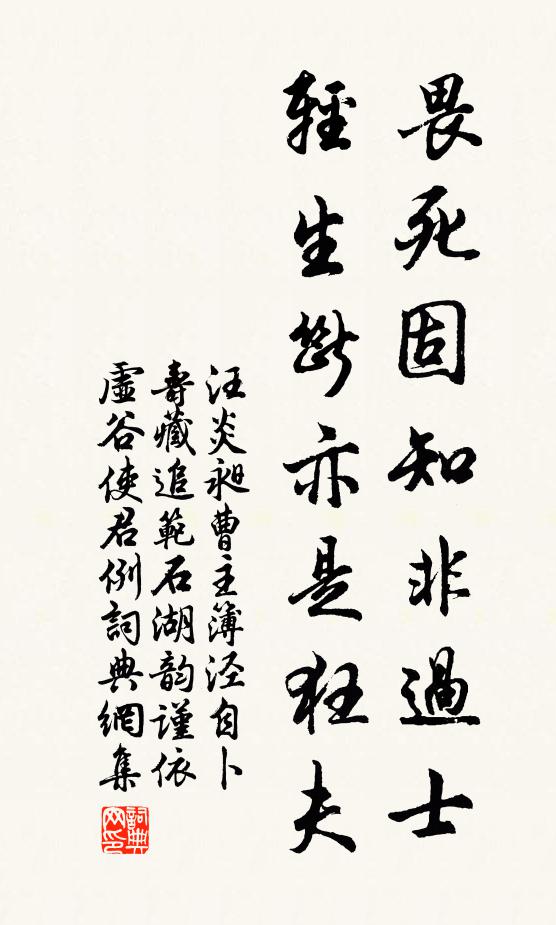 畏死固知非過士
輕生斷亦是狂夫
汪炎昶曹主簿涇自卜
壽藏追範石湖韵謹依
虛谷使君例詞典網集
詞典
网印